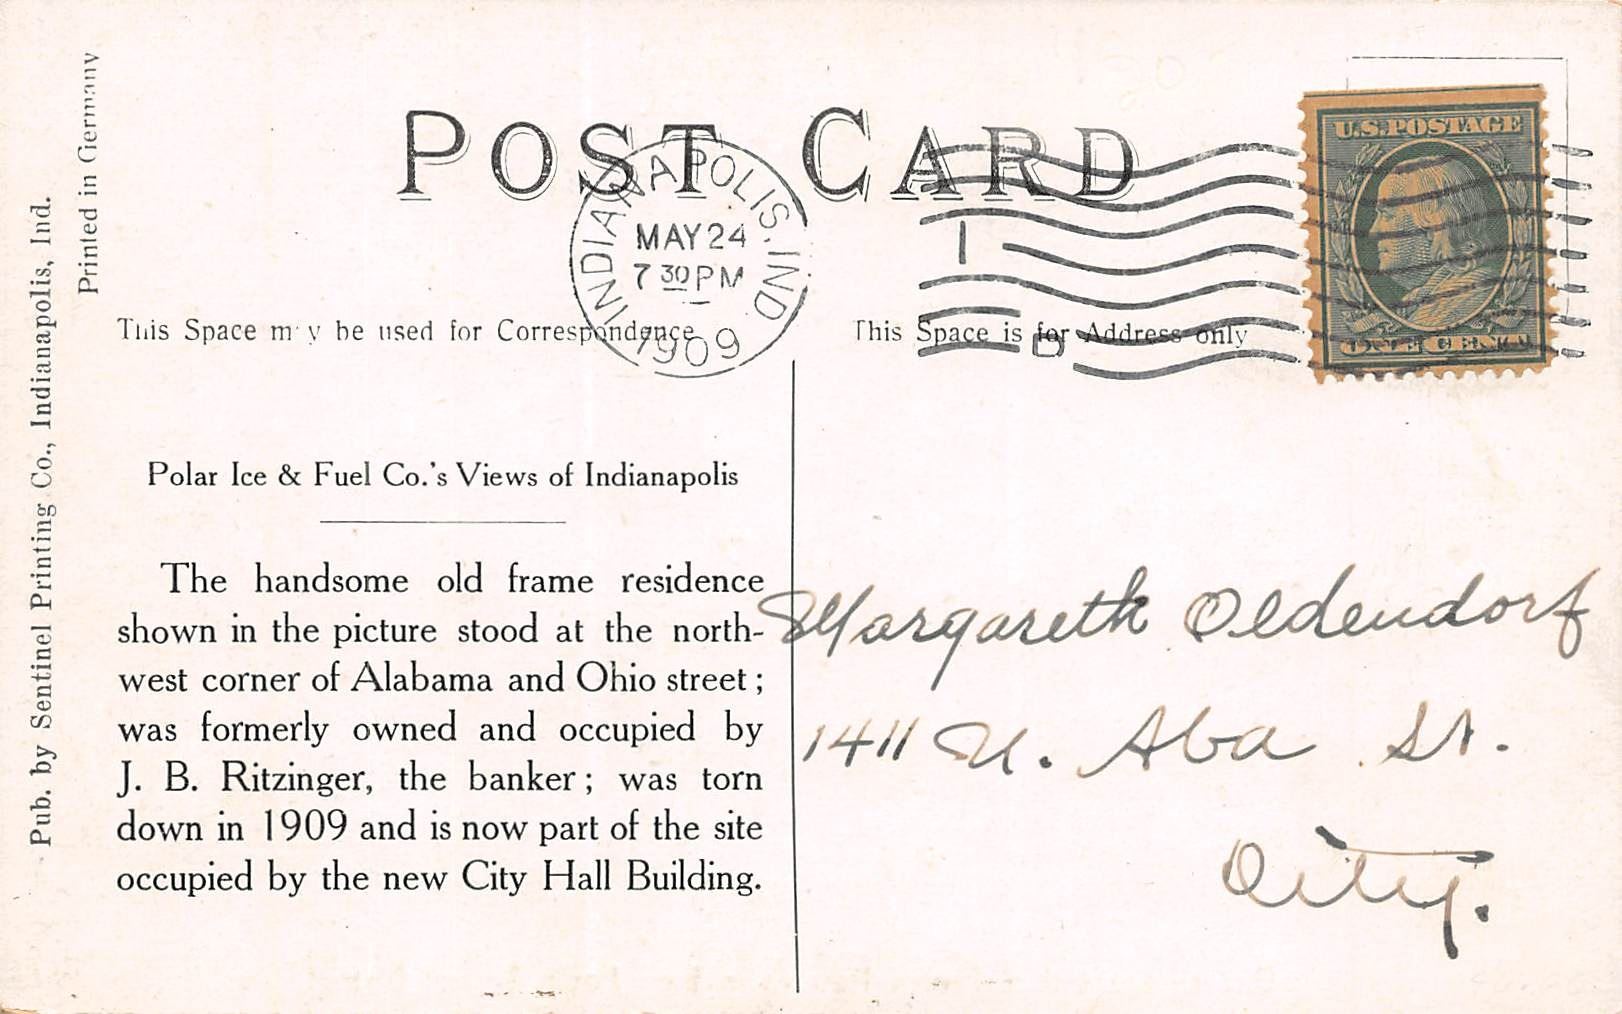 POST CARD
INDIANAPOLIS, IND.
MAY 24
7 30 PM
1909
1
D
U.S. POSTAGE
ONE CENT
This Space may be used for Correspondence
This Space is for Address only
Pub. by Sentinel Printing Co., Indianapolis, Ind.
Printed in Germany
Polar Ice & Fuel Co.'s Views of Indianapolis
The handsome old frame residence
shown in the picture stood at the north-
west corner of Alabama and Ohio street;
was formerly owned and occupied by
J. B. Ritzinger, the banker; was torn
down in 1909 and is now part of the site
occupied by the new City Hall Building.
Margareth Oldendorf
1411 N. Aba St.
City.